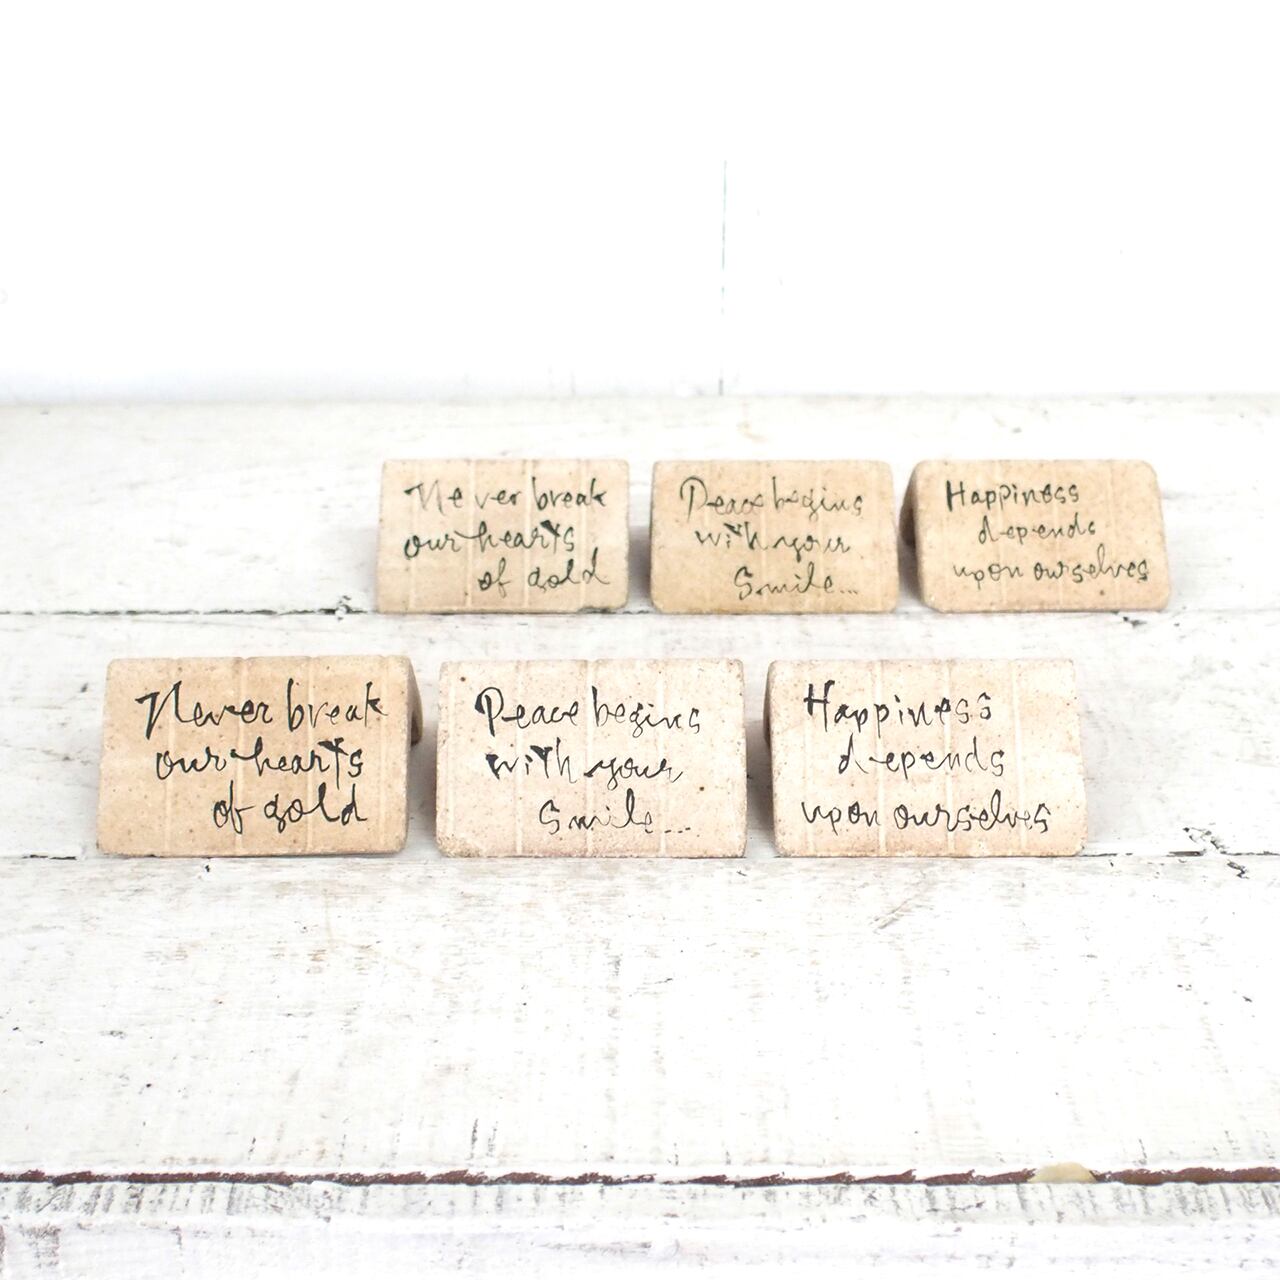 Never break
our hearts
of gold
Peace begins
with your
Smile...
Happiness
depends
upon ourselves
Never break
our hearts
of gold
Peace begins
with your
Smile...
Happiness
depends
upon ourselves